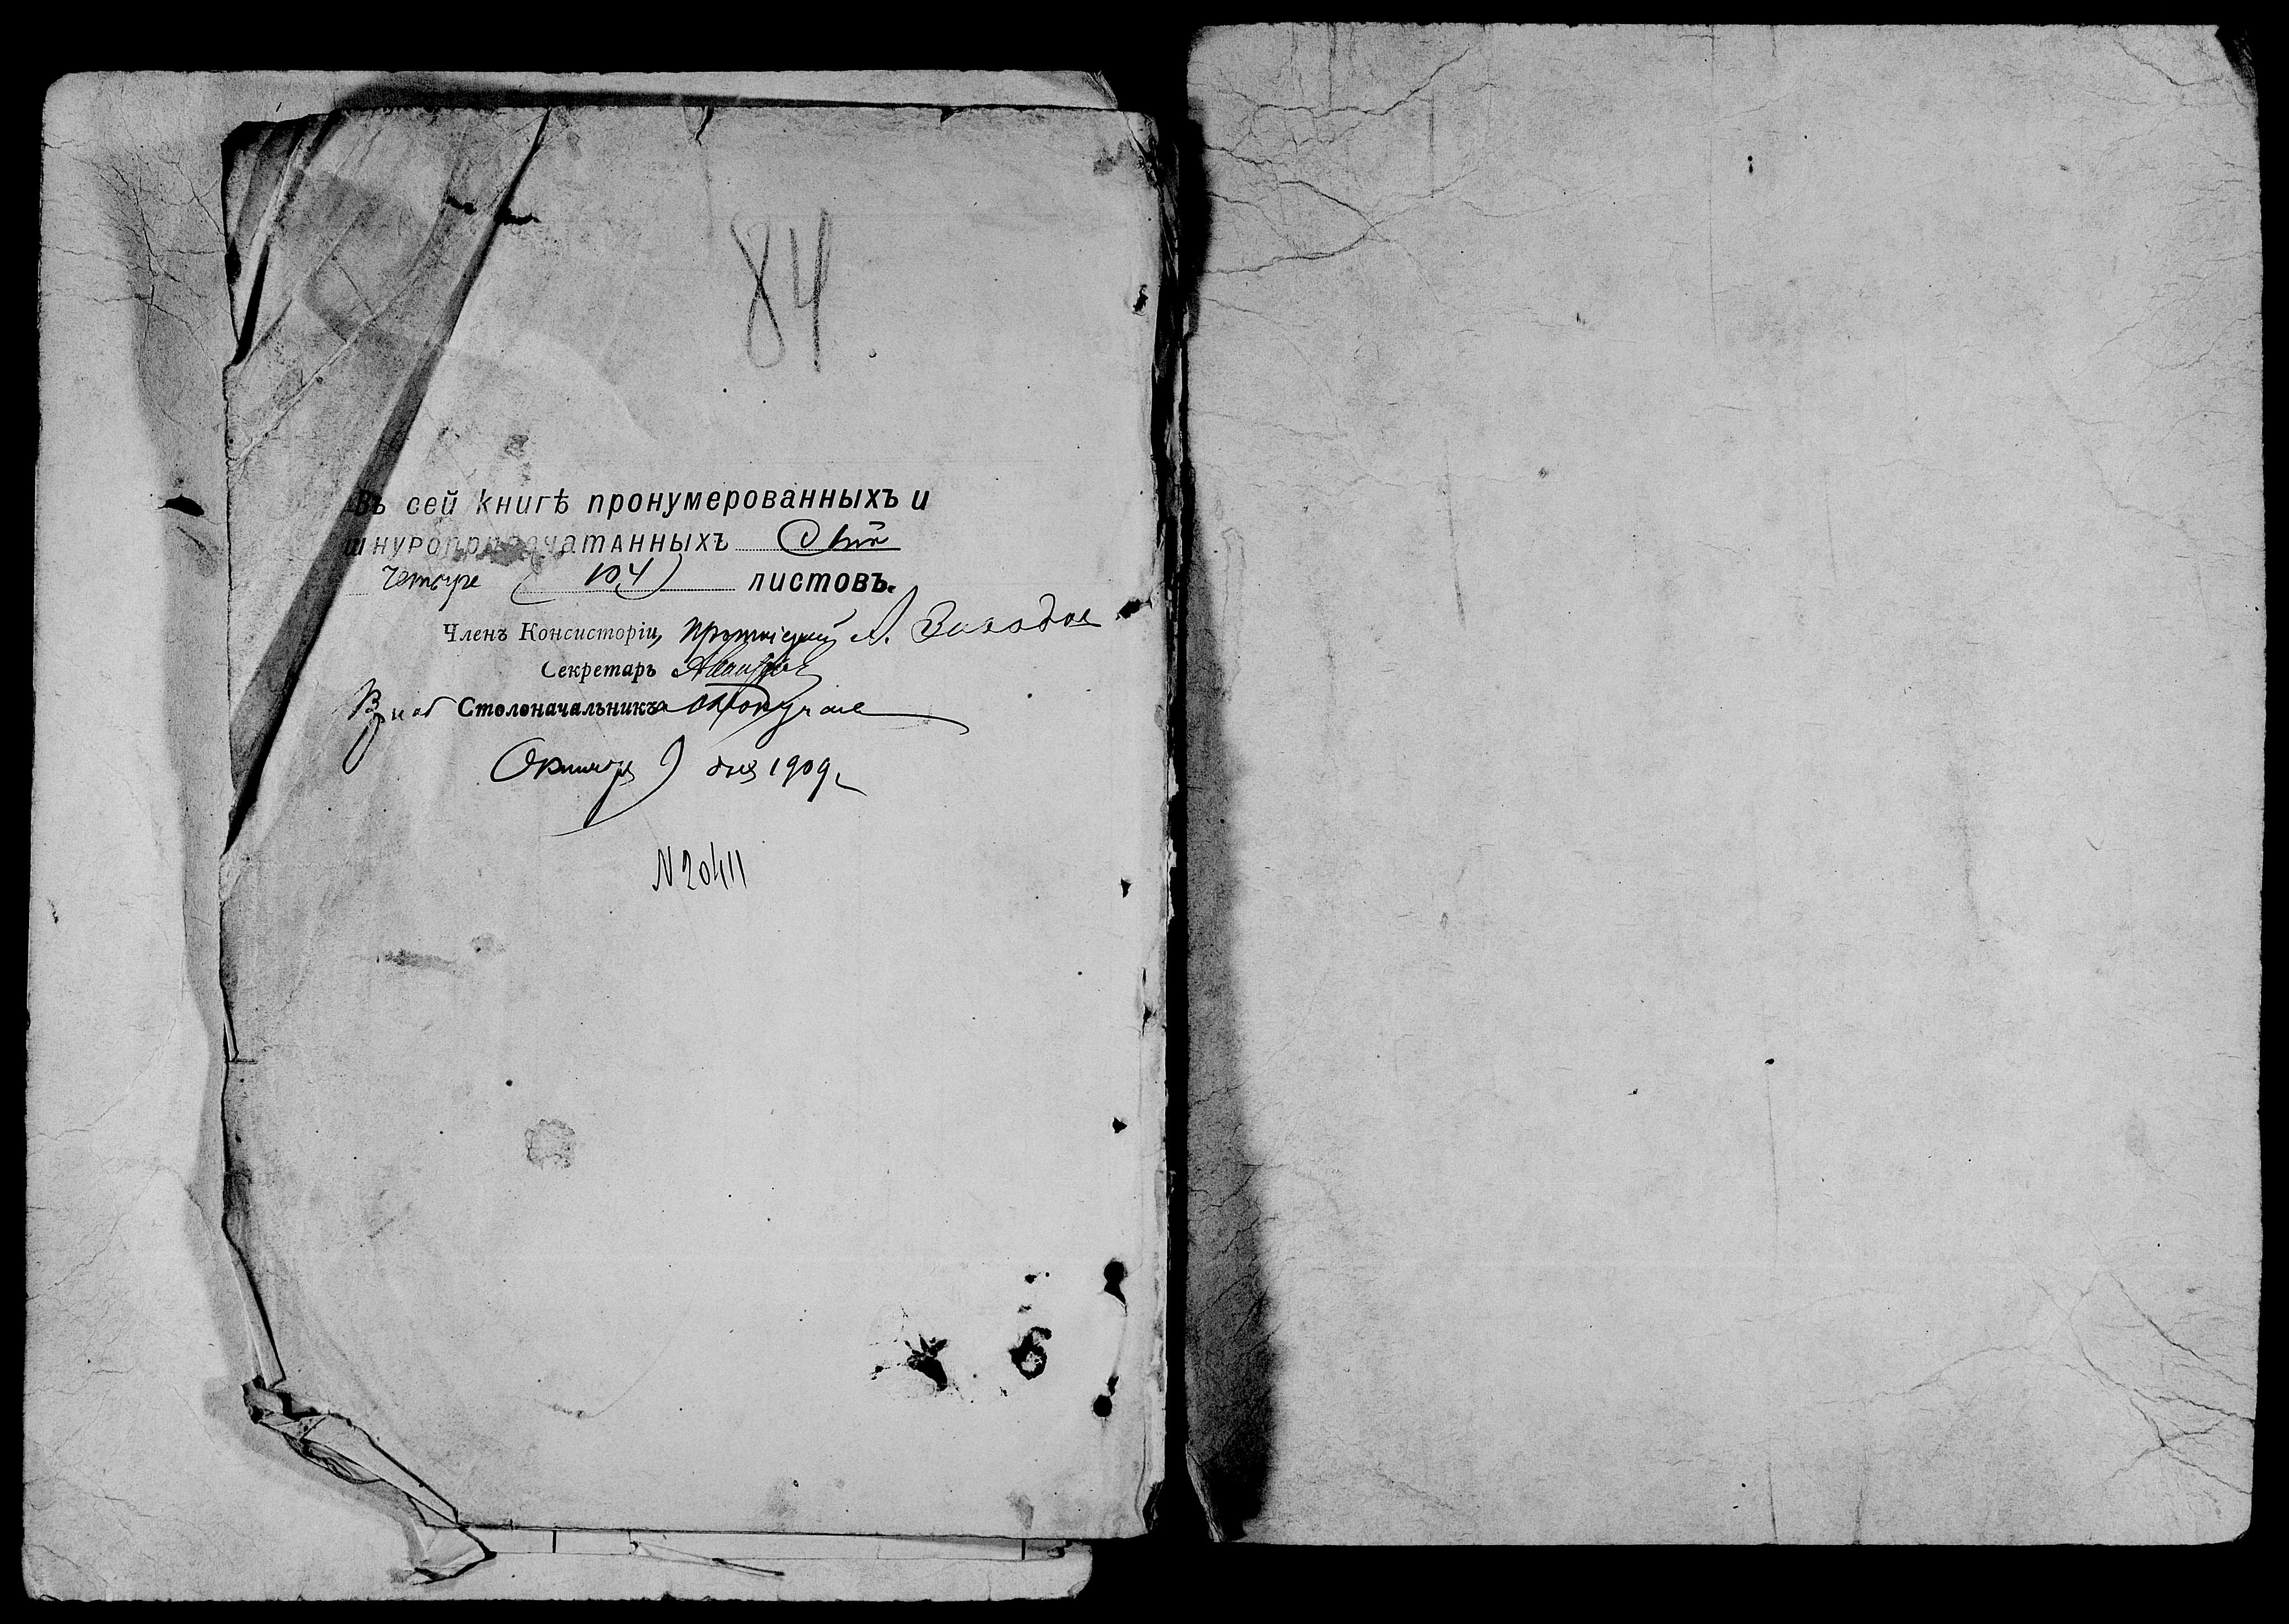 84
Въ сей книгѣ пронумерованныхъ и
шнуроприпечатанныхъ Сто
Четыре (104) листовъ.
Членъ Консисторіи, Протоіерей
Секретарь
Столоначальника
Октября 9 дня 1909 г
N 20411